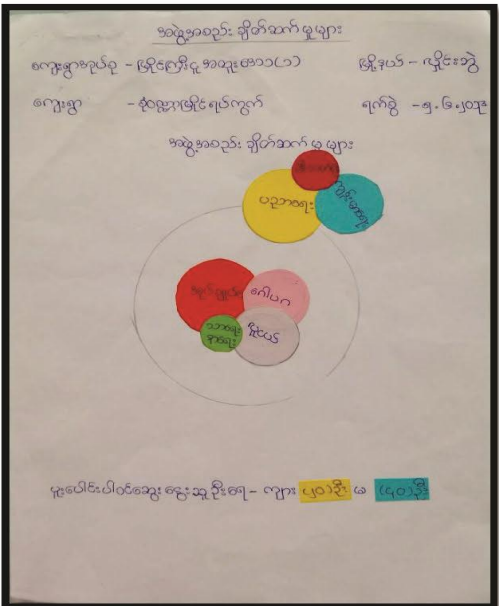 အဖွဲ့အစည်း ချိတ်ဆက်မှုများ
ကျေးရွာအုပ်စု - မြိုင်ကြီးငူ အထူးဒေသ(၁) မြို့နယ် - လှိုင်းဘွဲ
ကျေးရွာ - ရပ်ကွက် ရက်စွဲ - ၅.၆.၂၀၁၃
အဖွဲ့အစည်း ချိတ်ဆက်မှုများ
ပညာရေး
ဂေါပက
သာရေး
နာရေး
ပူးပေါင်းပါဝင်ဆွေးနွေးသူဦးရေ - ကျား (၂၀)ဦး မ (၄၀)ဦး